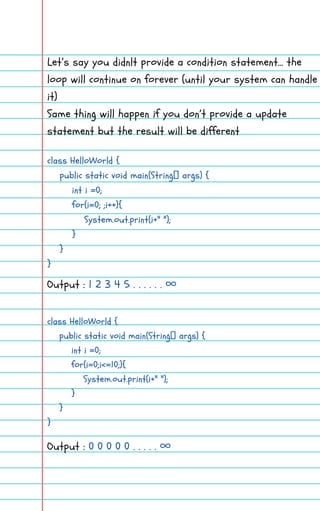 Let's say you didnlt provide a condition statement... the
loop will continue on forever (until your system can handle
it)
Same thing will happen if you don't provide a update
statement but the result will be different
class HelloWorld {
public static void main(String[] args) {
int i =0;
for(i=0; ;i++){
System.out.print(i+" ");
}
}
}
Output : 1 2 3 4 5 . . . . . . ∞
class HelloWorld {
public static void main(String[] args) {
int i =0;
for(i=0;i<=10;){
System.out.print(i+" ");
}
}
}
Output : 0 0 0 0 0 . . . . . ∞